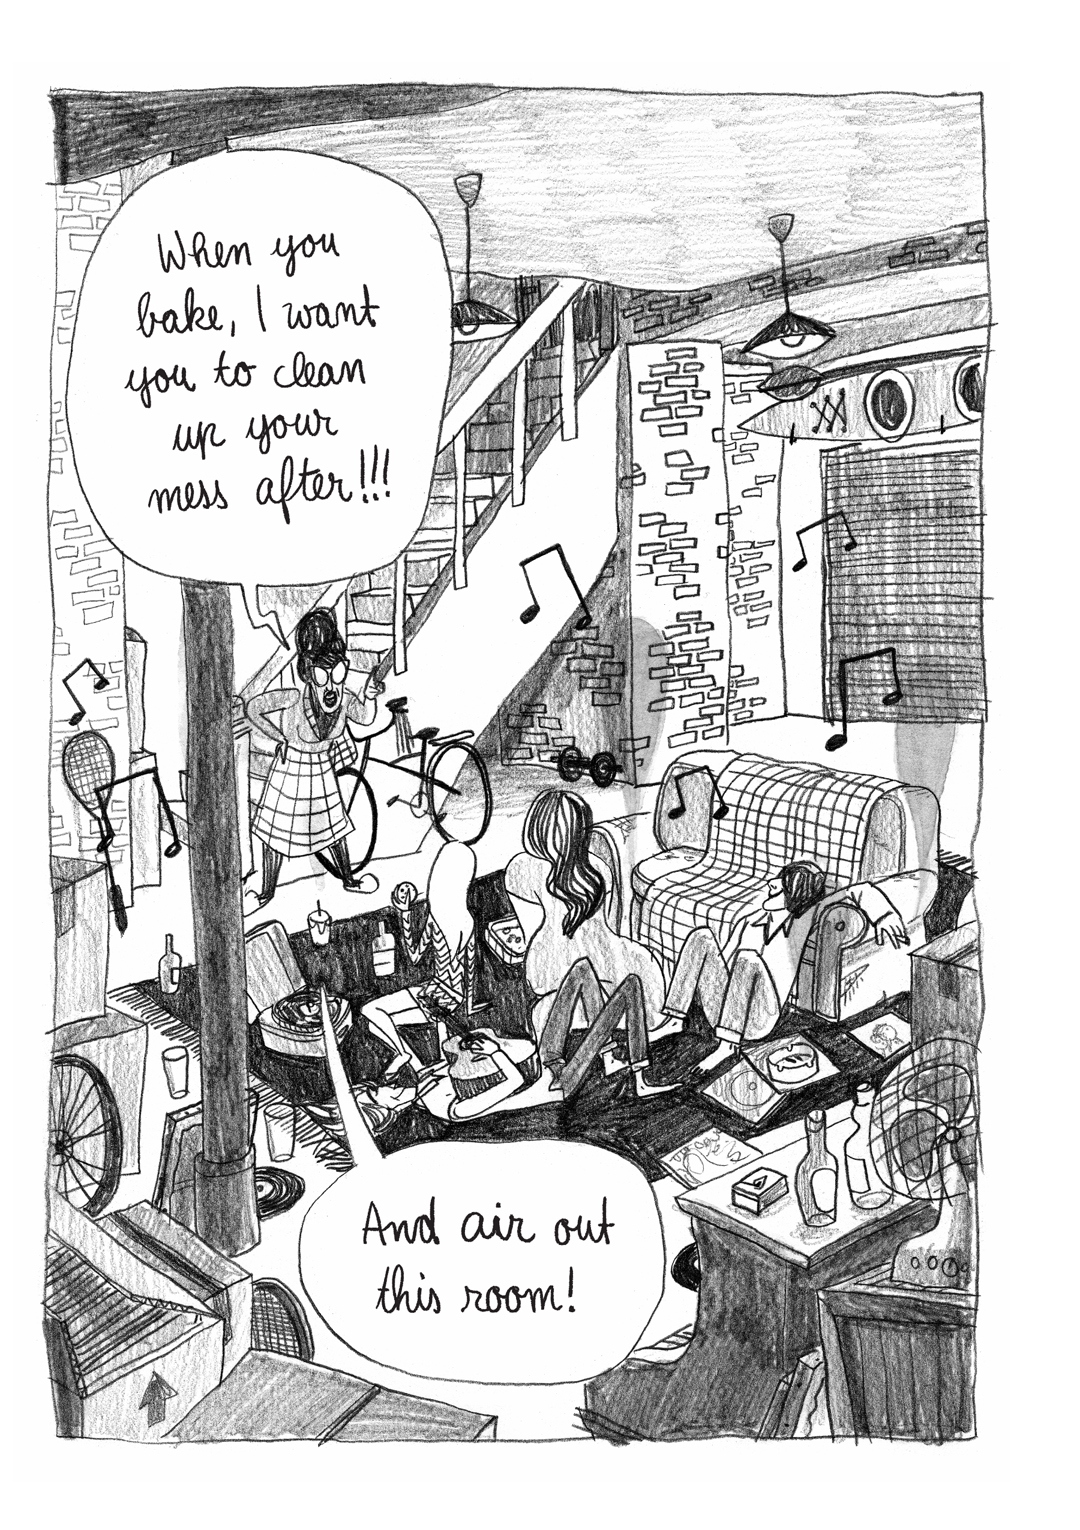 When you
bake, I want
you to clean
up your
mess after!!!
And air out
this room!